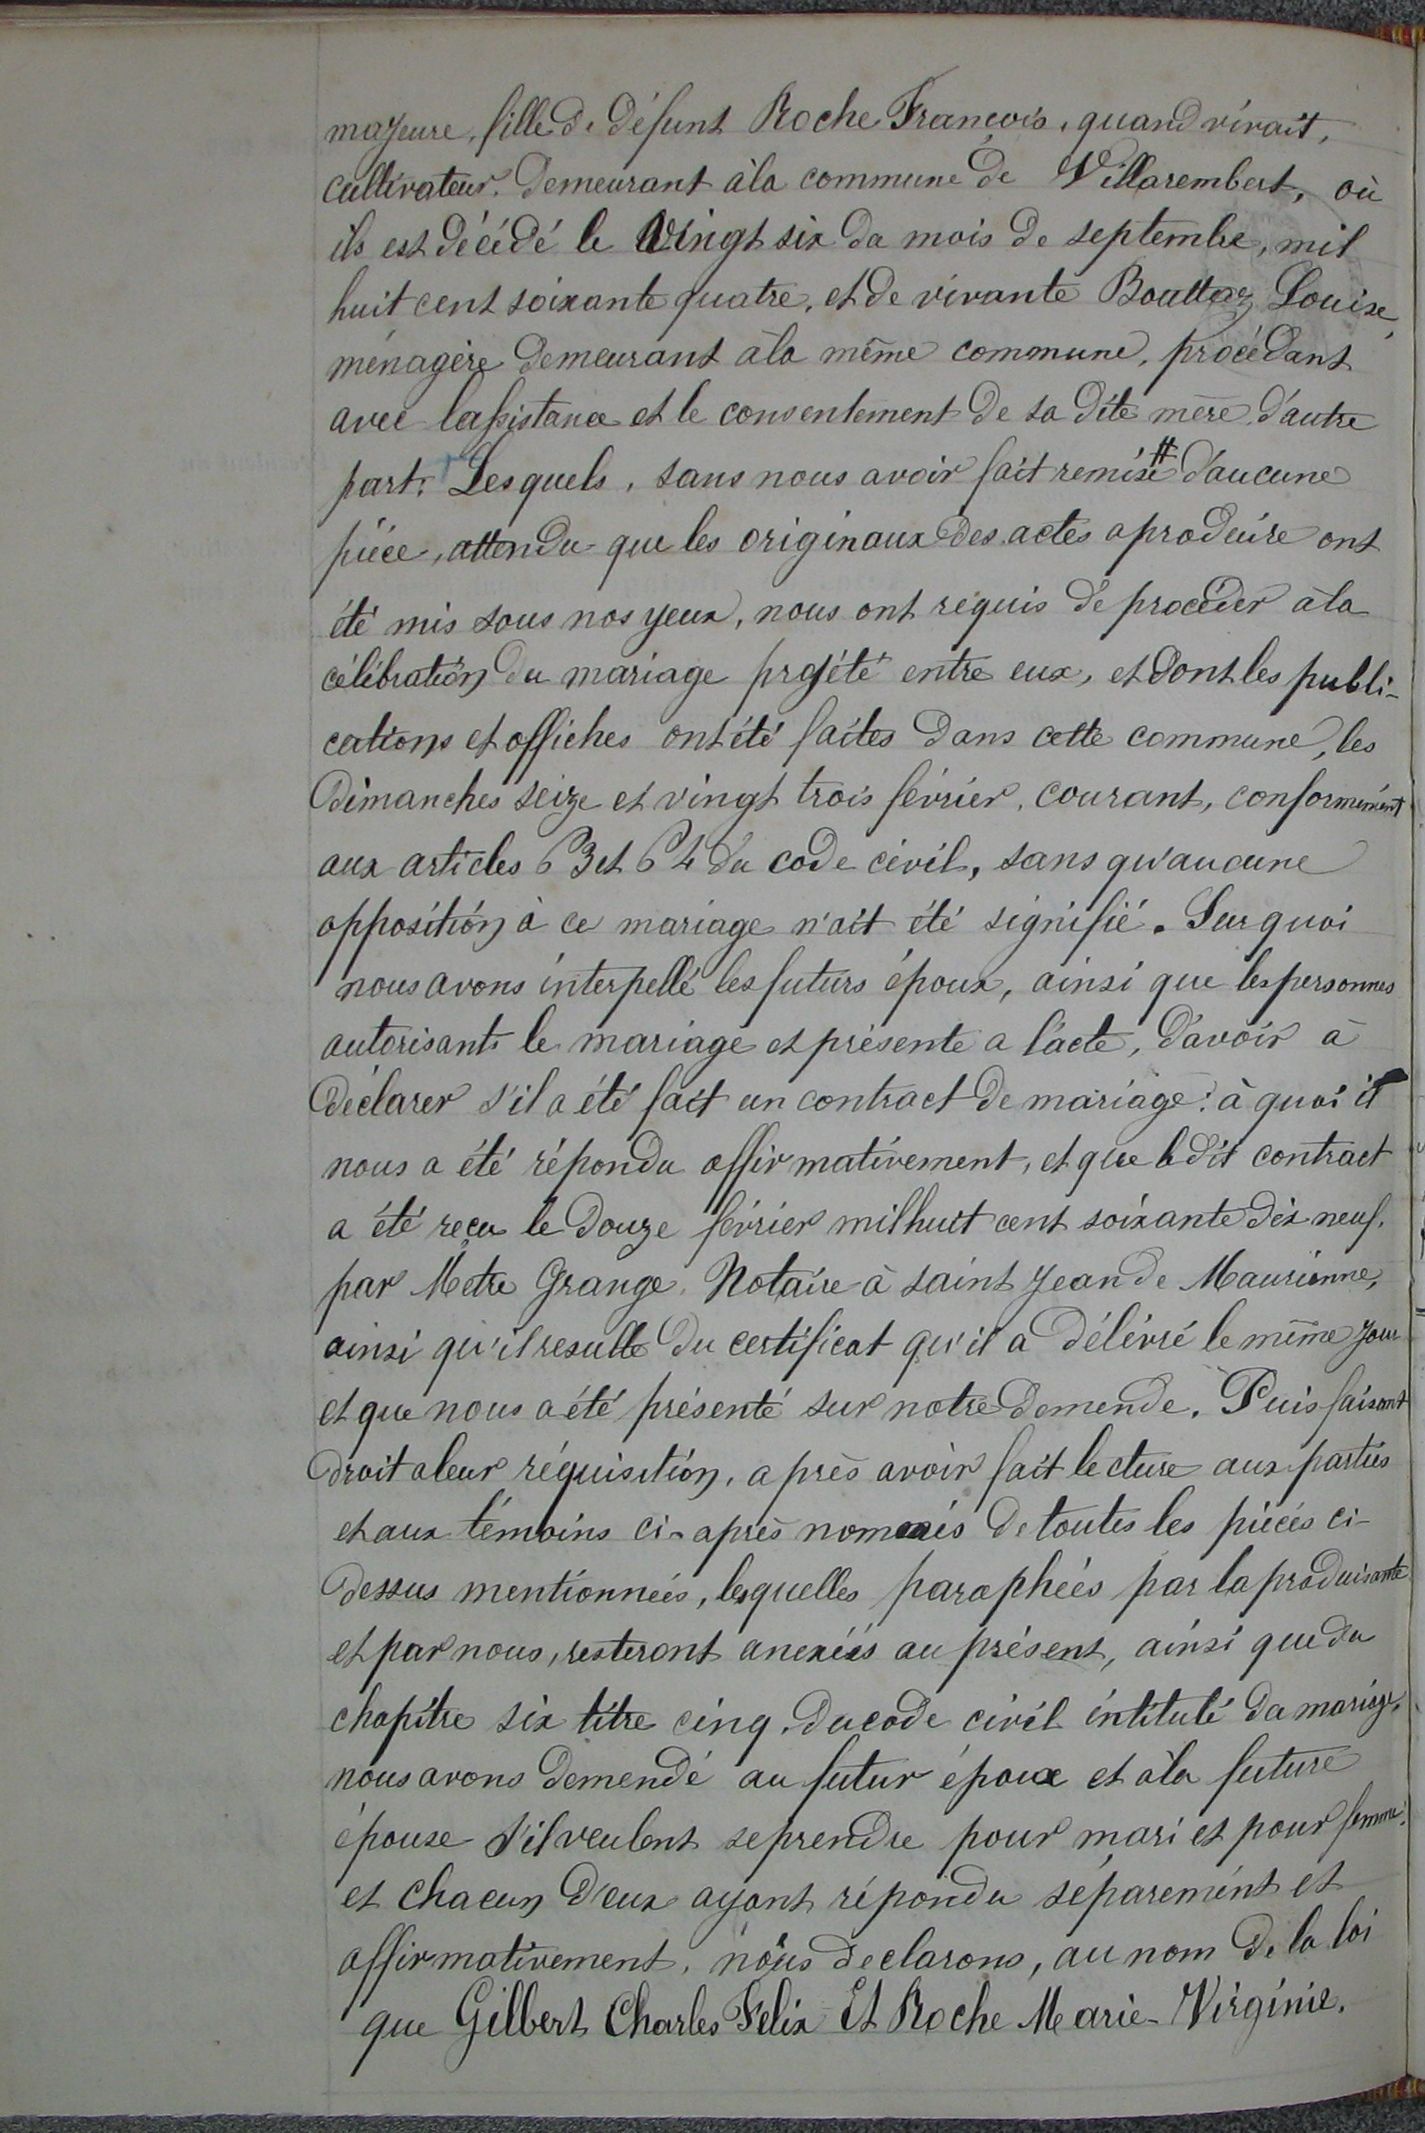 majeure, fille de défunt Roche François, quand vivait,
cultivateur. demeurant à la commune de Villarembert, où
ils est décédé le Vingt six du mois de septembre, mil
huit cent soixante quatre, et de vivante Bouttaz Louise,
ménagère demeurant à la même commune, procédant
avec lassistance et le consentement de sa dite mère d'autre
part. Lesquels, sans nous avoir fait remise # d'aucune
pièce, attendu que les originaux des actes a produire ont
été mis sous nos yeux, nous ont requis de procéder à la
célébration du mariage projété entre eux, et dont les publi-
cations et affiches ont été faites dans cette commune, les
dimanches seize et vingt trois février, courant, conformément
aux articles 63 et 64 du code civil, sans qu'aucune
opposition à ce mariage n'ait été signifié. Sur quoi
nous avons interpellé les futurs époux, ainsi que les personnes
autorisant le mariage et présente a l'acte, d'avoir à
déclarer s'il a été fait un contract de mariage: à quoi il
nous a été répondu affirmativement, et que ledit contract
a été reçu le douze février mil huit cent soixante dix neuf,
par Metre Grange, Notaire à saint Jean de Maurienne,
ainsi qu'il resulte du certificat qu'il a délivré le même jour
et que nous a été présenté sur notre demende. Puis faisant
droit a leur réquisition, après avoir fait lecture aux parties
et aux témoins ci-après nommés de toutes les pièces ci-
dessus mentionnées, lesquelles paraphées par la produisante
et par nous, resteront anexées au présent, ainsi que du
chapitre six titre cinq, du code civil intitulé du mariage,
nous avons demendé au futur époux et à la future
épouse s'il veulent se prendre pour mari et pour femme:
et chacun d'eux ayant répondu séparemént et
affirmativement, nous declarons, au nom de la loi
que Gilbert Charles Felix Et Roche Marie-Virginie.